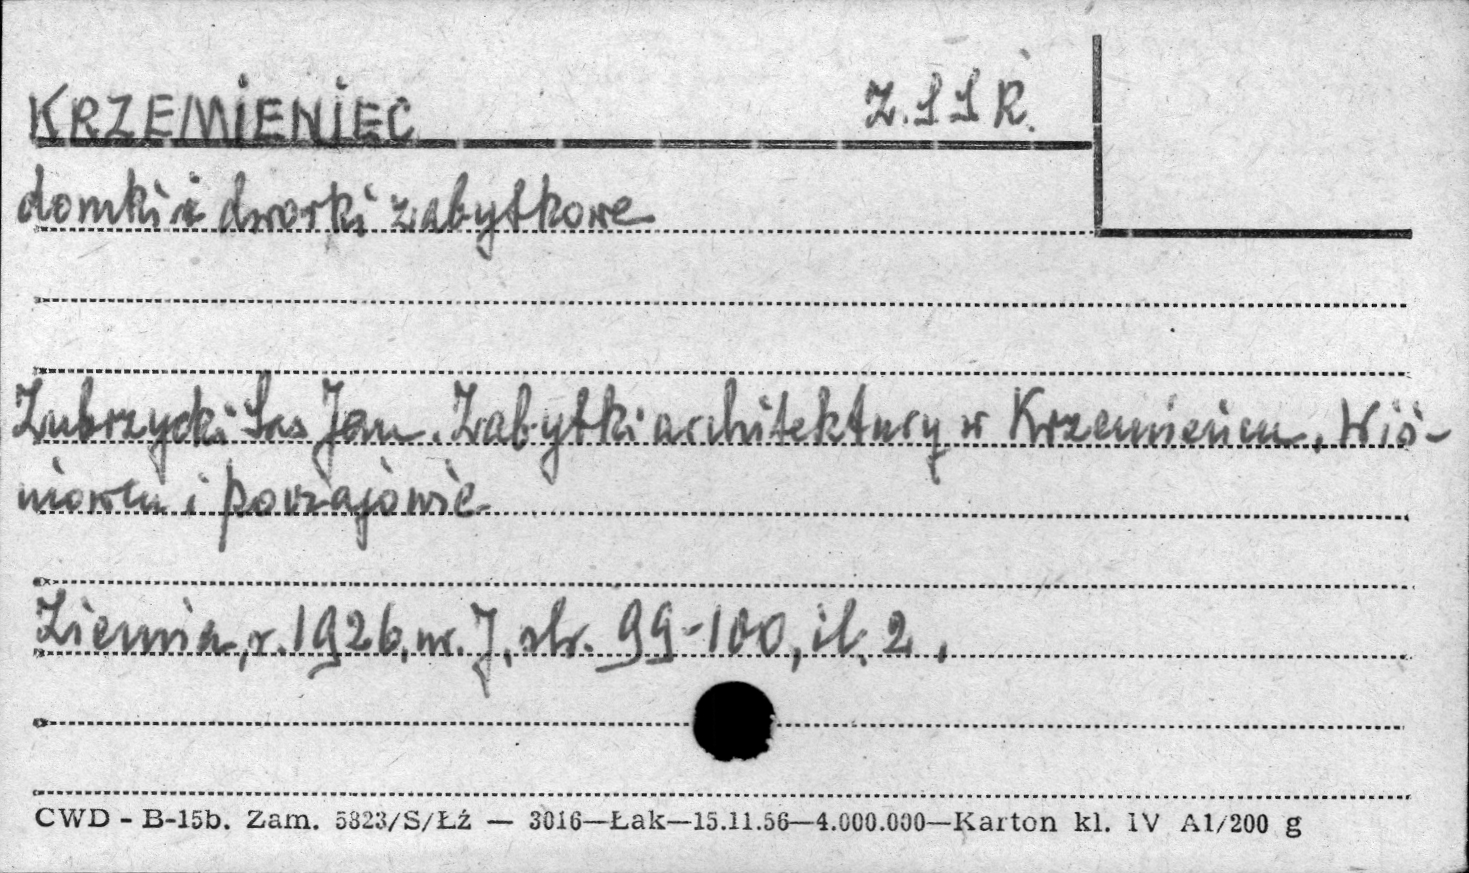 KRZEMIENIEC Z.S.S.R.
domki i dworki zabytkowe
Zubrzycki Sas Jan. Zabytki architektury w Krzemieńcu, Wiś-
niowcu i Poczajowie
Ziemia, r. 1926, nr. 7, str. 99-100, il. 2,
CWD - B-15b. Zam. 5823/S/Łź — 3016—Łak—15.11.56—4.000.000—Karton kl. IV A1/200 g